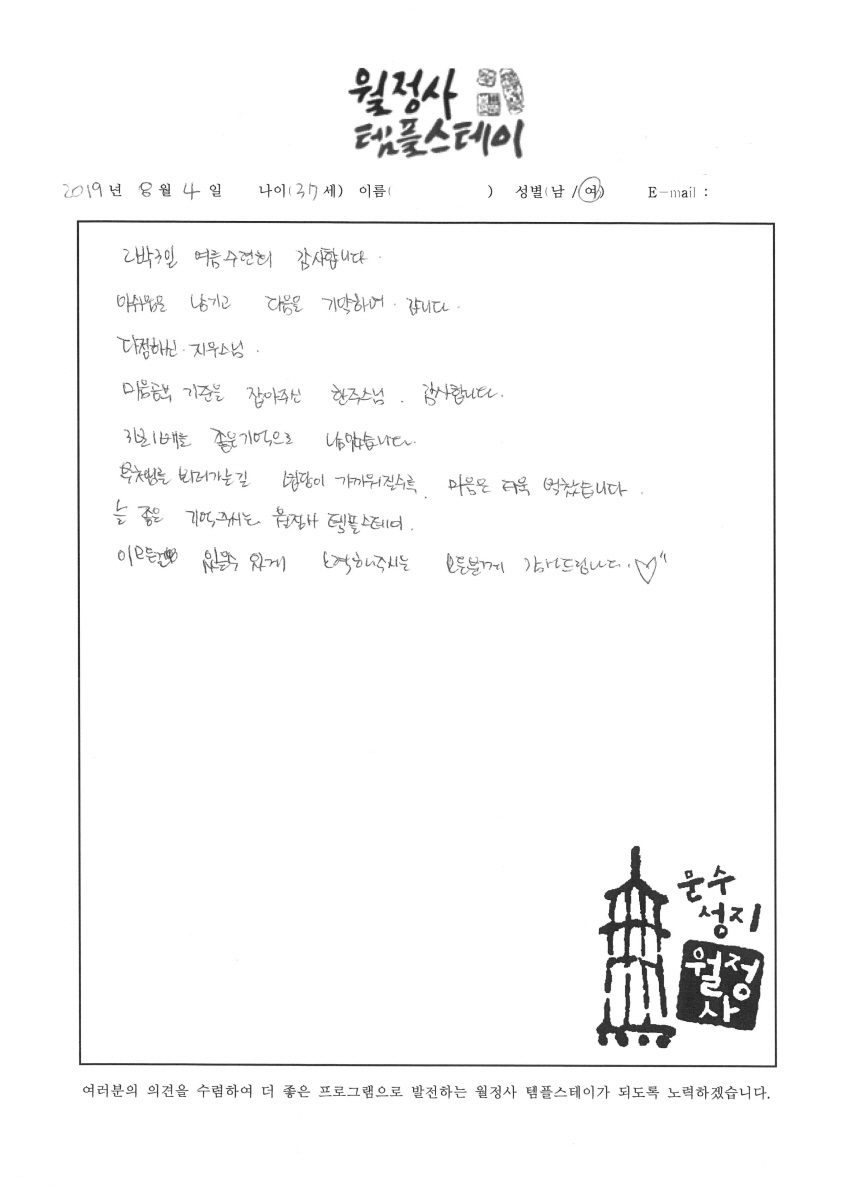 월정사
템플스테이
2019년 8월 4일 나이(37세) 이름( ) 성별(남 / 여) E-mail :
2박3일 여름수련회 감사합니다.
아쉬움을 남기고 다음을 기약하며. 갑니다.
다정하신. 지우스님.
마음공부 기준을 잡아주신 한주스님. 감사합니다.
3보1배를 좋은기억으로 남았습니다.
가는길 법당이 가까워질수록. 마음은 더욱 벅찼습니다.
늘 좋은 기억주시는 월정사 템플스테이.
있을수 있게 노력해주시는 모든분께 감사드립니다.♡"
문수
성지
월정
사
여러분의 의견을 수렴하여 더 좋은 프로그램으로 발전하는 월정사 템플스테이가 되도록 노력하겠습니다.